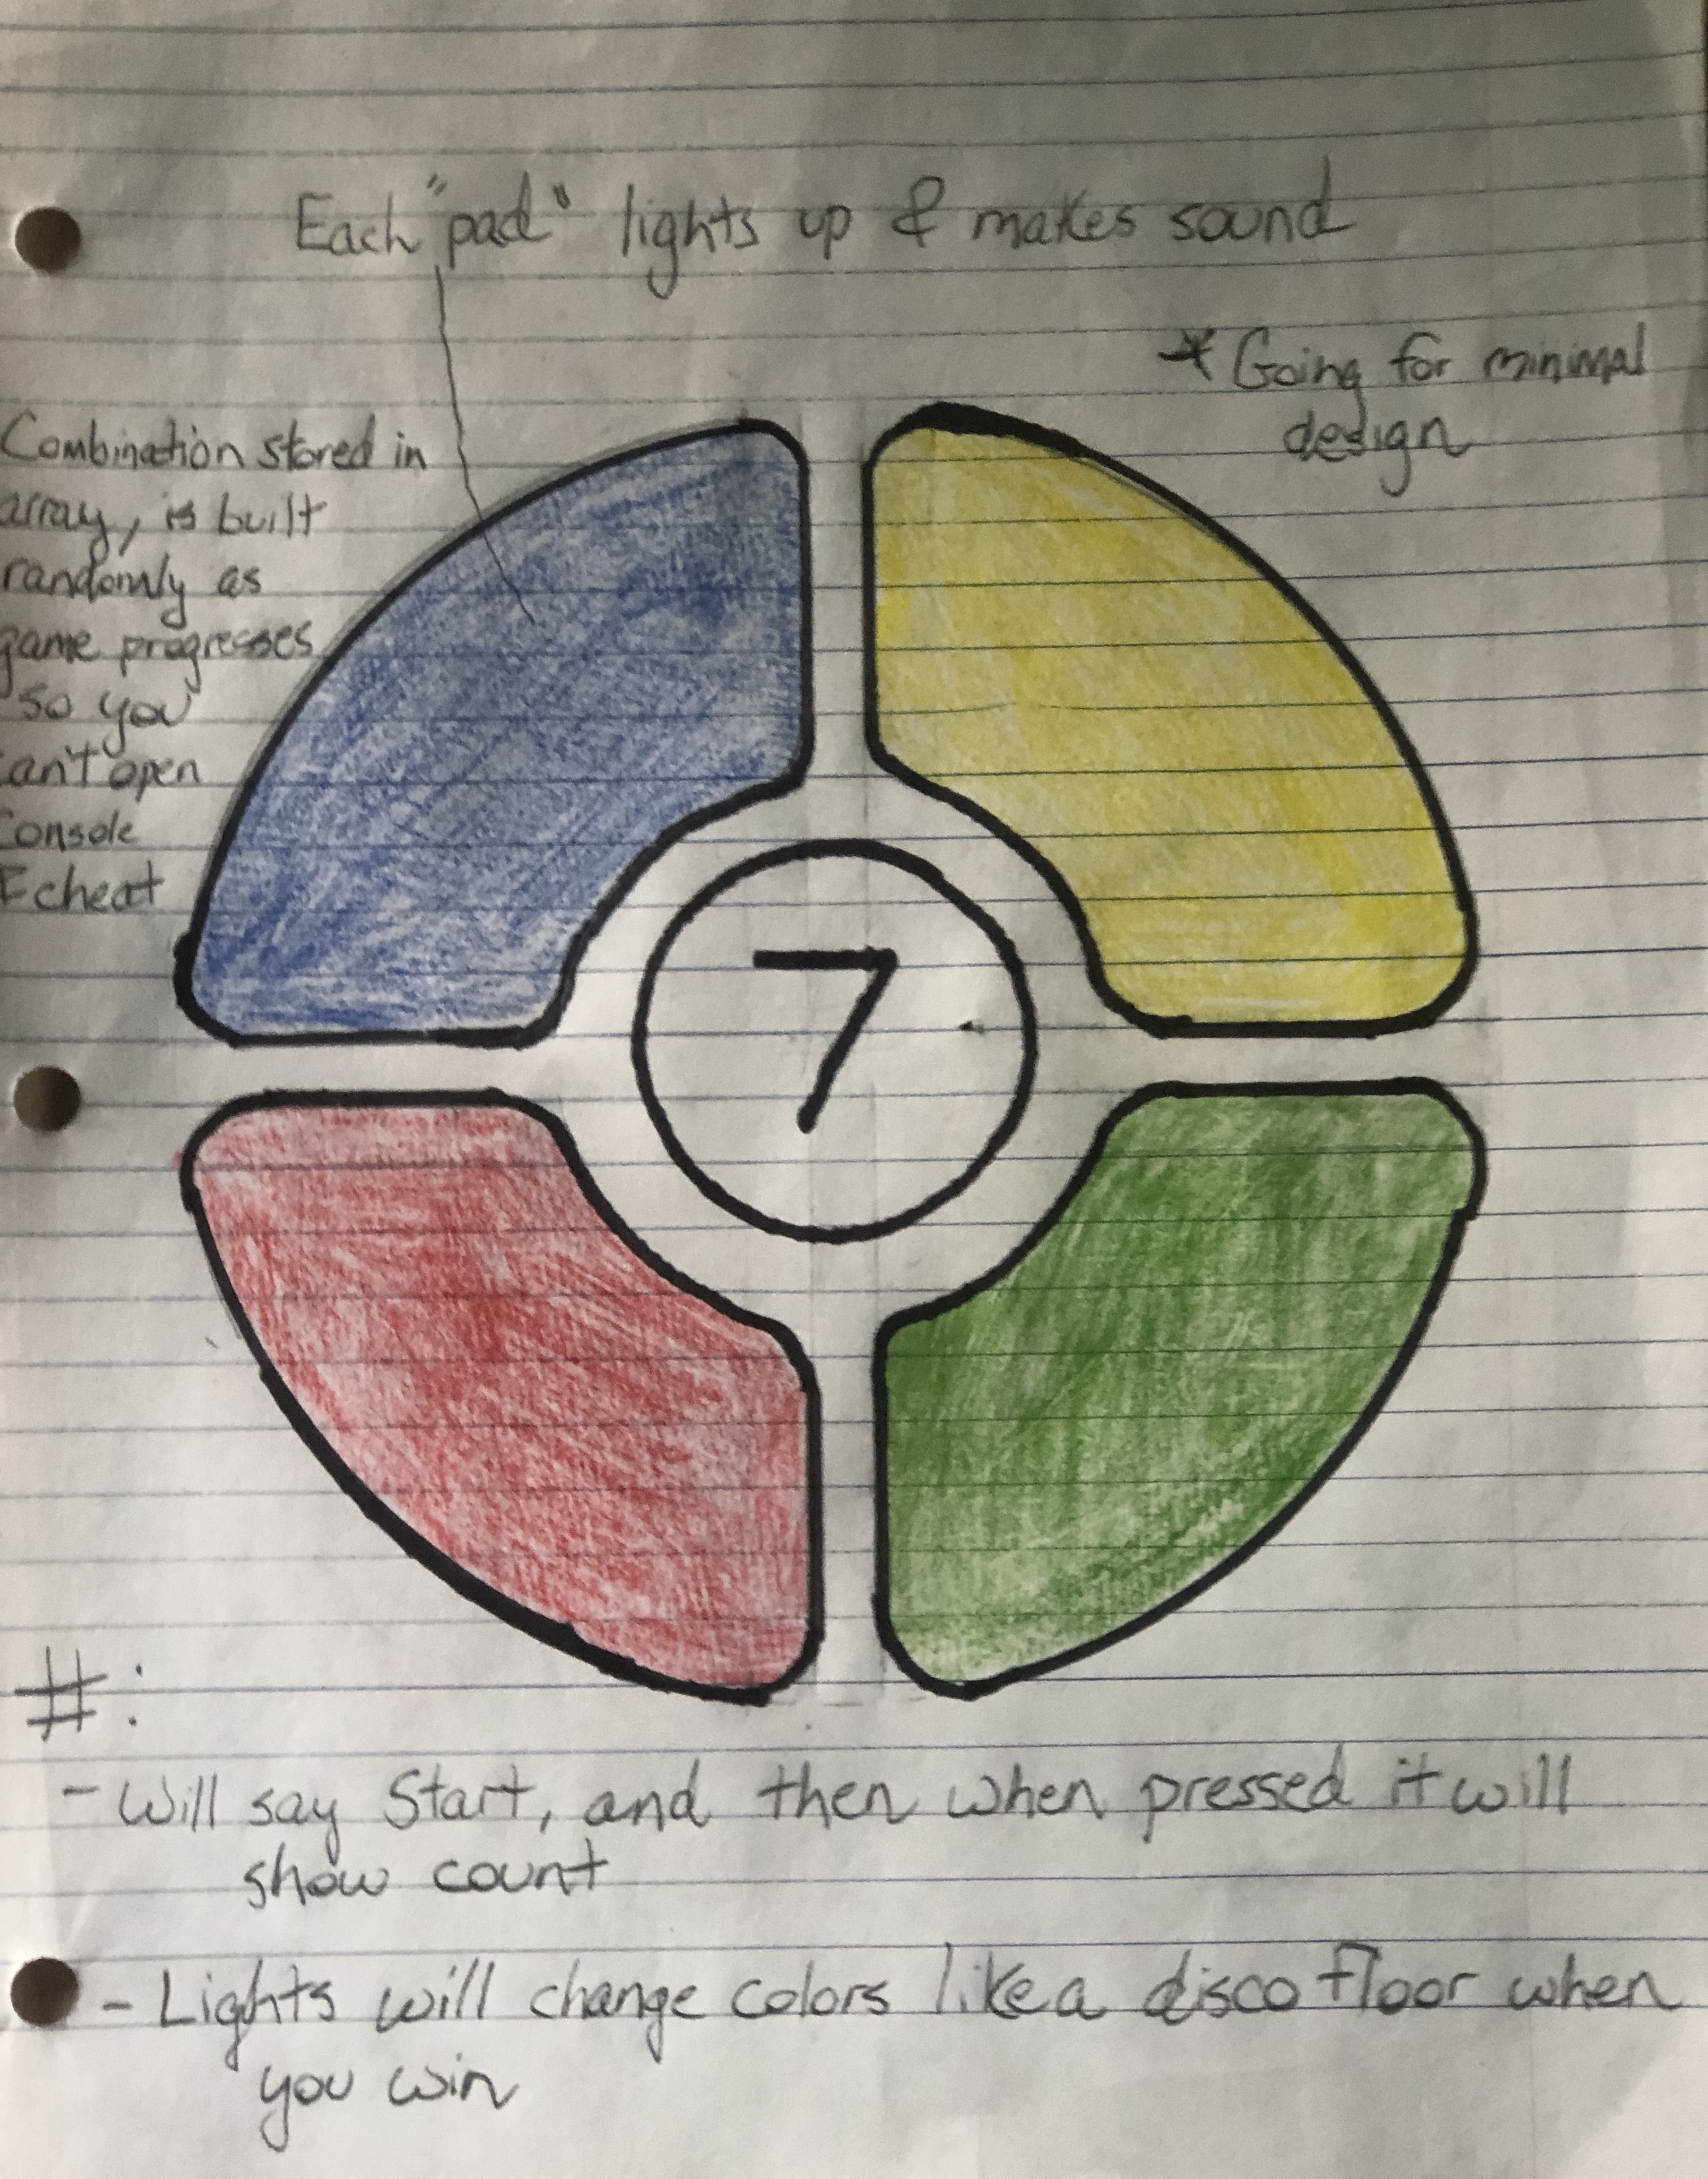 Each "pad" lights up & makes sound
* Going for minimal
design
Combination stored in
array, is built
randomly as
game progresses
so you
can't open
Console
& cheat
7
#:
- Will say Start, and then when pressed it will
show count
- Lights will change colors like a disco floor when
you win